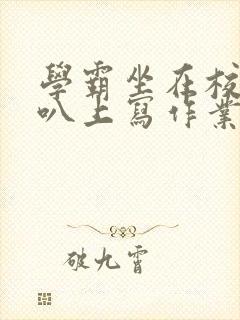 學霸坐在校
叭上寫作業
破九霄